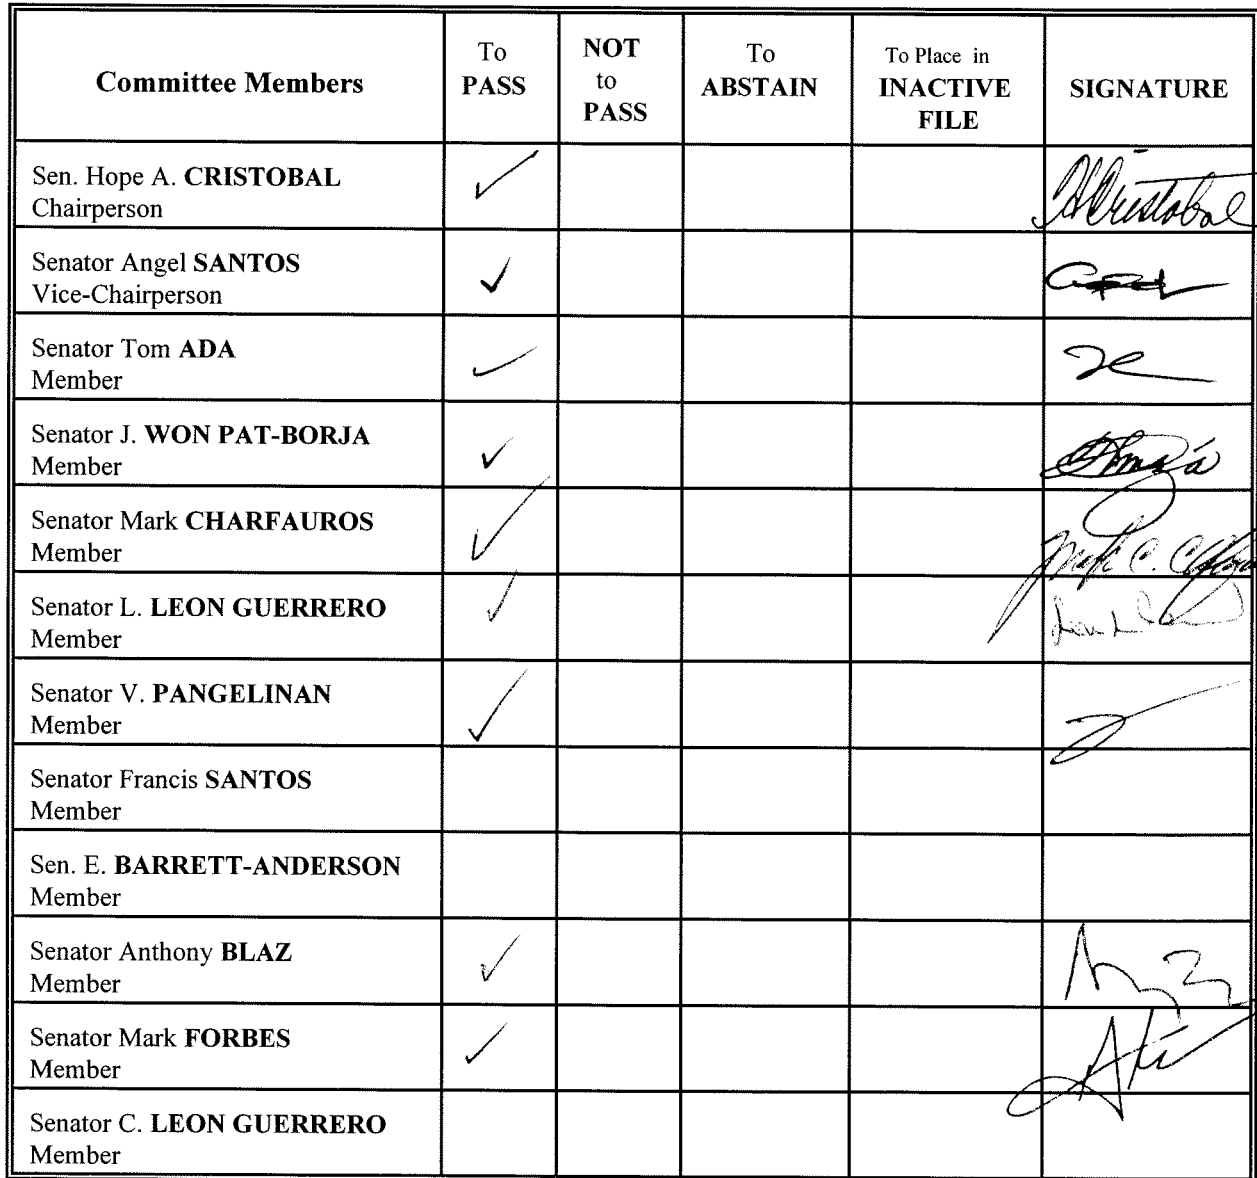 Committee Members
To
PASS
NOT
to
PASS
To
ABSTAIN
To Place in
INACTIVE
FILE
SIGNATURE
Sen. Hope A. CRISTOBAL
Chairperson
✓
HACristobal
Senator Angel SANTOS
Vice-Chairperson
✓
Senator Tom ADA
Member
✓
Senator J. WON PAT-BORJA
Member
✓
Senator Mark CHARFAUROS
Member
✓
Senator L. LEON GUERRERO
Member
✓
Senator V. PANGELINAN
Member
✓
Senator Francis SANTOS
Member
Sen. E. BARRETT-ANDERSON
Member
Senator Anthony BLAZ
Member
✓
Senator Mark FORBES
Member
✓
Senator C. LEON GUERRERO
Member